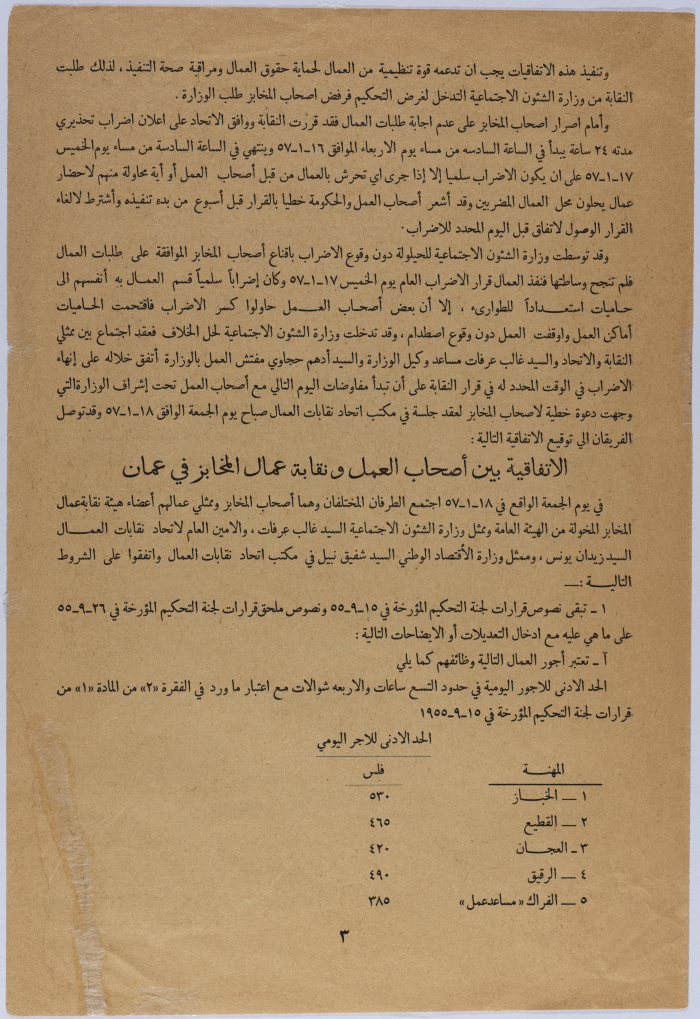 وتنفيذ هذه الاتفاقيات يجب ان تدعمه قوة تنظيمية من العمال لحماية حقوق العمال ومراقبة صحة التنفيذ ، لذلك طلبت
النقابة من وزارة الشئون الاجتماعية التدخل لغرض التحكيم فرفض اصحاب المخابز طلب الوزارة .
وأمام اصرار اصحاب المخابز على عدم اجابة طلبات العمال فقد قررت النقابة ووافق الاتحاد على اعلان اضراب تحذيري
مدته ٢٤ ساعة يبدأ في الساعة السادسه من مساء يوم الاربعاء الموافق ١٦-١-٥٧ وينتهي في الساعة السادسة من مساء يوم الخميس
١٧-١-٥٧ على ان يكون الاضراب سلميا إلا إذا جرى اي تحرش بالعمال من قبل أصحاب العمل أو أية محاولة منهم لاحضار
عمال يحلون محل العمال المضربين وقد أشعر أصحاب العمل والحكومة خطيا بالقرار قبل أسبوع من بدء تنفيذه وأشترط لالغاء
القرار الوصول لاتفاق قبل اليوم المحدد للاضراب .
وقد توسطت وزارة الشئون الاجتماعية للحيلولة دون وقوع الاضراب باقناع أصحاب المخابز الموافقة على طلبات العمال
فلم تنجح وساطتها فنفذ العمال قرار الاضراب العام يوم الخميس ١٧-١-٥٧ وكان إضراباً سلمياً قسم العمـال به أنفسهم الى
حـاميات استعـــداداً للطوارىء ، إلا أن بعض أصحـاب العــمل حاولوا كسر الاضراب فاقتحمت الحـاميات
أماكن العمل واوقفت العمل دون وقوع اصطدام ، وقد تدخلت وزارة الشئون الاجتماعية لحل الخلاف فعقد اجتماع بين ممثلي
النقابة والاتحاد والسيد غالب عرفات مساعد وكيل الوزارة والسيد أدهم حجاوي مفتش العمل بالوزارة أتفق خلاله على إنهاء
الاضراب في الوقت المحدد له في قرار النقابة على أن تبدأ مفاوضات اليوم التالي مع أصحاب العمل تحت إشراف الوزارة التي
وجهت دعوة خطية لاصحاب المخابز لعقد جلسة في مكتب اتحاد نقابات العمال صباح يوم الجمعة الوافق ١٨-١-٥٧ وقد توصل
الفريقان الي توقيع الاتفاقية التالية :
الاتفاقية بين أصحاب العمل ونقابة عمال المخابز في عمان
في يوم الجمعة الواقع في ١٨-١-٥٧ اجتمع الطرفان المختلفان وهما أصحاب المخابز وممثلي عمالهم أعضاء هيئة نقابة عمال
المخابز المخولة من الهيئة العامة وممثل وزارة الشئون الاجتماعية السيد غالب عرفات ، والامين العام لاتحاد نقابات العمـــال
السيد زيدان يونس ، وممثل وزارة الأقتصاد الوطني السيد شفيق نبيل في مكتب اتحاد نقابات العمال واتفقوا على الشروط
التاليـــة :ــ
١ ــ تبقى نصوص قرارات لجنة التحكيم المؤرخة في ١٥-٩-٥٥ ونصوص ملحق قرارات لجنة التحكيم المؤرخة في ٢٦-٩-٥٥
على ما هي عليه مع ادخال التعديلات أو الايضاحات التالية :
آ ــ تعتبر أجور العمال التالية وظائفهم كما يلي
الحد الادنى للاجور اليومية في حدود التسع ساعات والاربعه شوالات مع اعتبار ما ورد في الفقرة «٢» من المادة «١» من
قرارات لجنة التحكيم المؤرخة في ١٥-٩-١٩٥٥
الحد الادنى للاجر اليومي
المهنــة فلس
١ ــ الخبــاز ٥٣٠
٢ ــ القطيع ٤٦٥
٣ ــ العجــان ٤٢٠
٤ ــ الرقيق ٤٩٠
٥ ــ الفراك «مساعد عمل» ٣٨٥
٣